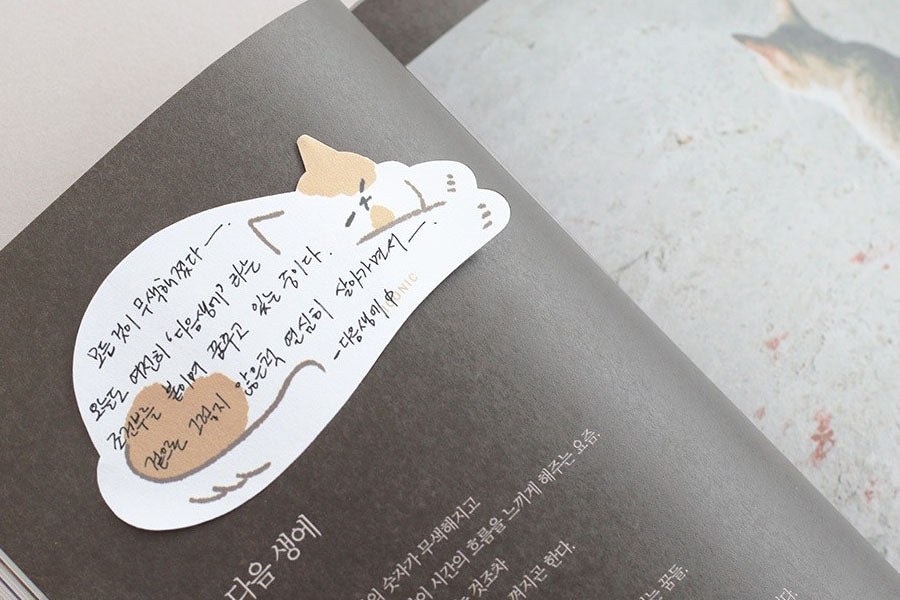 모든 것이 무색해졌다 —.
오늘도 여전히 '다음생에' 라는
조건부를 붙이며 꿈꾸고 있는 중이다.
겉으론 그렇지 않은척 열심히 살아가면서 —.
- 다음생에 中
ICONIC
다음 생에
의 숫자가 무색해지고
시간의 흐름을 느끼게 해주는 요즘.
것조차
꺼지곤 한다.
는 꿈들.
다.